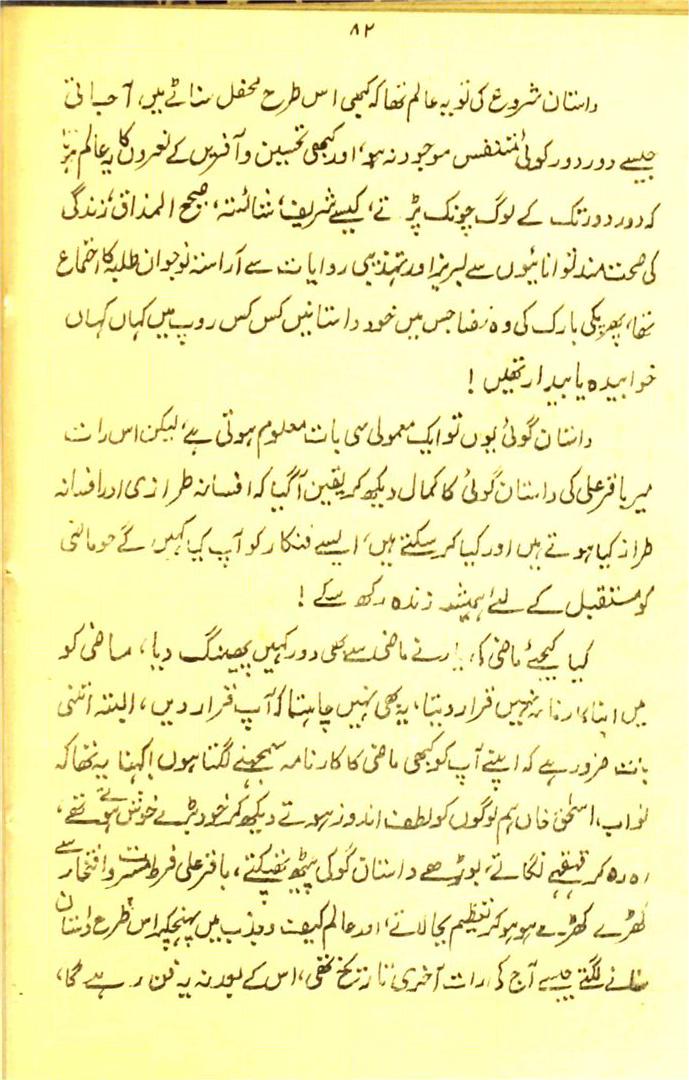 ۸۲
داستان شروع کی تو یہ عالم تھا کہ کبھی اس طرح محفل سناٹے میں آ جاتی
جیسے دور دور کوئی متنفس موجود نہ ہو، اور کبھی تحسین و آفریں کے نعروں کا یہ عالم ہوتا
کہ دور دور تک کے لوگ چونک پڑتے، کیسے شریف، شائستہ، صحیح المذاق، زندگی
کی صحت مند توانائیوں سے لبریز اور تہذیبی روایات سے آراستہ نوجوان طلبہ کا اجتماع
تھا، پھر پکی بارک کی وہ فضا جس میں خود داستانیں کس کس روپ میں کہاں کہاں
خوابیدہ یا بیدار تھیں !
داستان گوئی یوں تو ایک معمولی سی بات معلوم ہوتی ہے، لیکن اس رات
میر باقر علی کی داستان گوئی کا کمال دیکھ کر یقین آگیا کہ افسانہ طرازی اور افسانہ
طراز کیا ہوتے ہیں اور کیا کر سکتے ہیں، ایسے فنکار کو آپ کیا کہیں گے جو ماضی
کو مستقبل کے لئے ہمیشہ زندہ رکھ سکے !
کیا کیجئے ماضی کی یاد نے ماضی سے بھی دور کہیں پھینک دیا، ماضی کو
میں اپنا کارنامہ نہیں قرار دیتا، یہ بھی نہیں چاہتا کہ آپ قرار دیں، البتہ اتنی
بات ضرور ہے کہ اپنے آپ کو کبھی ماضی کا کارنامہ سمجھنے لگتا ہوں! کہنا یہ تھا کہ
نواب اسحٰق خاں ہم لوگوں کو لطف اندوز ہوتے دیکھ کر خود بڑے خوش ہوتے تھے،
رہ رہ کر قہقہے لگاتے، بوڑھے داستان گو کی پیٹھ تھپکتے، باقر علی فرط مسرت و افتخار سے
کھڑے کھڑے ہو ہو کر تعظیم بجا لاتے، اور عالم کیف و جذب میں پہنچکر اس طرح داستان
سنانے لگتے جیسے آج کی رات آخری تاریخ تھی، اس کے بعد نہ یہ فن رہے گا،